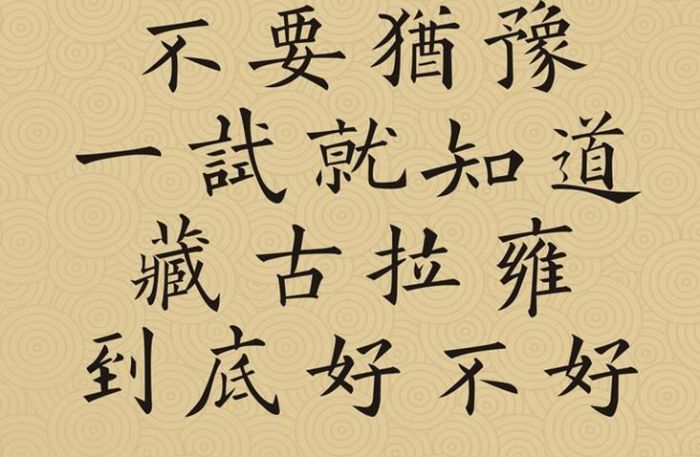 不要猶豫
一試就知道
藏古拉雍
到底好不好